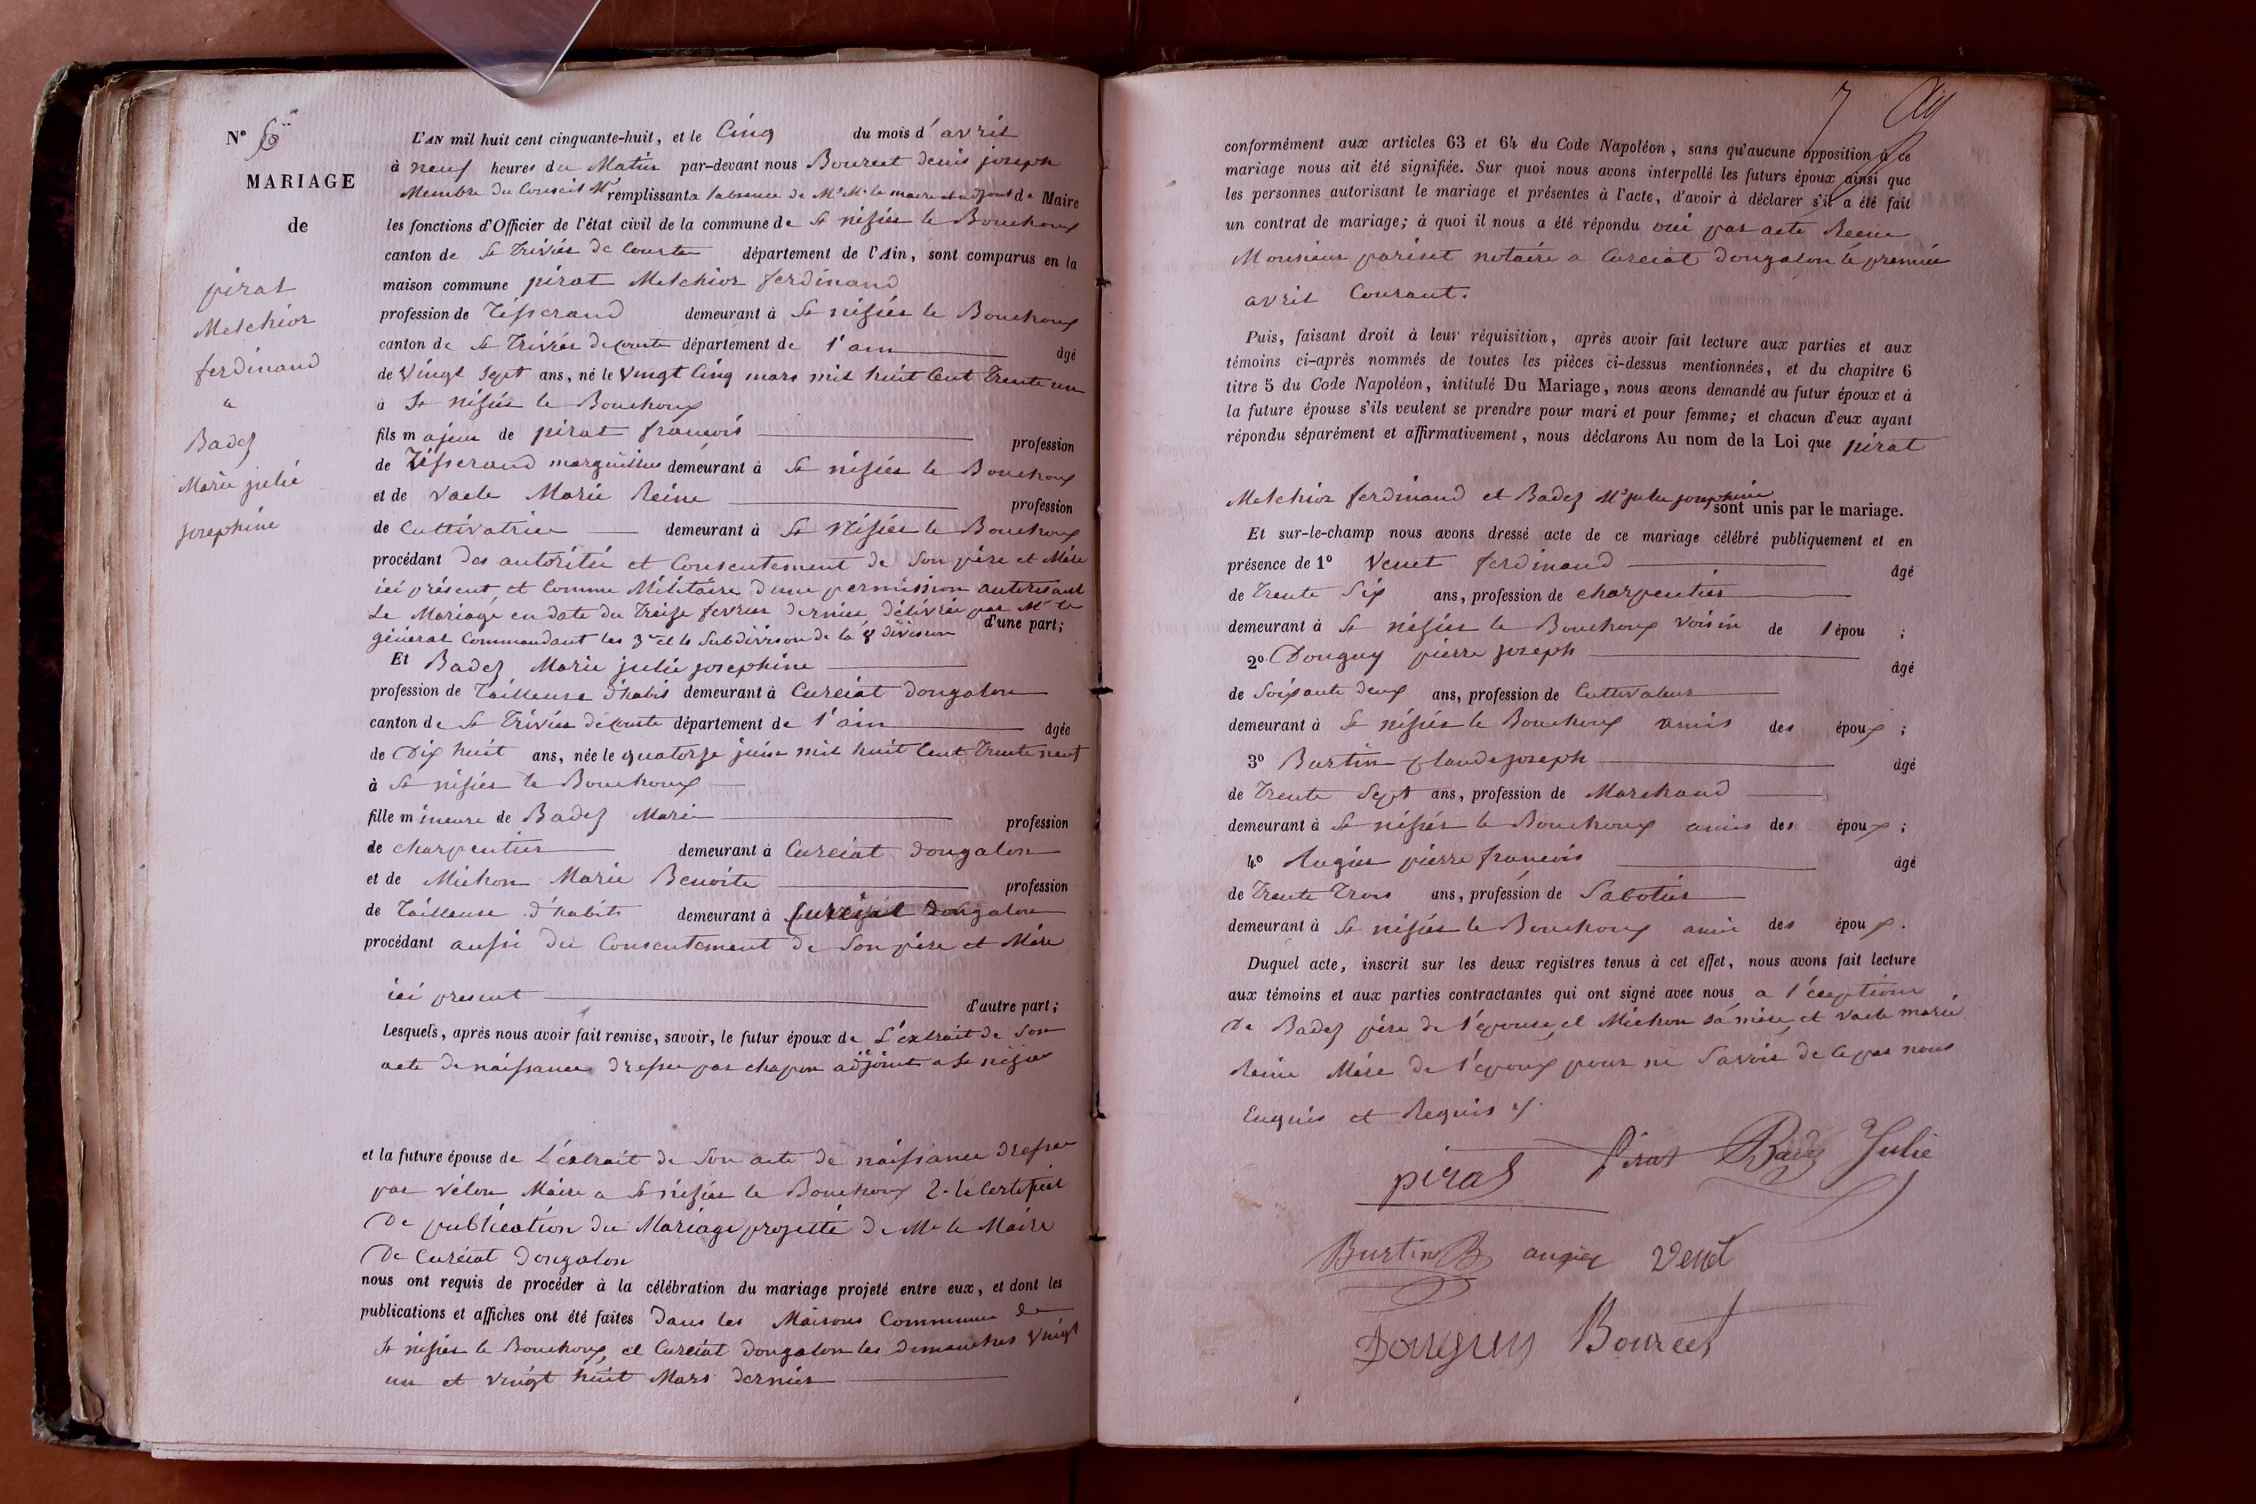 N° 6
MARIAGE
de
pirat
Melchior
ferdinand
a
Badez
Marie julie
josephine
L'AN mil huit cent cinquante-huit, et le Cinq du mois d'avril
à neuf heures du Matin par-devant nous Bourcet denis joseph
Membre du Conseil Mal remplissant a l'absence de Mr le maire et adjoint de Maire
les fonctions d'Officier de l'état civil de la commune de St nisier le Bouchoux
canton de St Trivier de Courtes département de l'Ain, sont comparus en la
maison commune pirat Melchior ferdinand
profession de Tisserand demeurant à St nisier le Bouchoux
canton de St Trivier de courte département de l'ain âgé
de Vingt Sept ans, né le Vingt Cinq mars mil huit Cent Trente un
à St nisier le Bouchoux
fils majeur de pirat francois profession
de Tisserand marguillier demeurant à St nisier le Bouchoux
et de vacle Marie Reine profession
de Cultivatrice demeurant à St Nisier le Bouchoux
procédant des autorité et Consentement de Son père et Mère
ici présent, et Comme Militaire d'une permission autorisant
Le Mariage en date du Treize fevrier dernier, délivrée par Mr le
général Commandant les 3e et 4e Subdivision de la 8e division d'une part;
Et Badez Marie julie josephine
profession de Tailleuse d'habis demeurant à Curciat dongalon
canton de St Trivier de courte département de l'ain âgée
de Dix huit ans, née le quatorze juin mil huit Cent Trente neuf
à St nisier le Bouchoux
fille mineure de Badez Marie profession
de charpentier demeurant à Curciat dongalon
et de Michon Marie Benoite profession
de Tailleuse d'habits demeurant à Curciat Dongalon
procédant aussi du Consentement de Son père et Mère
ici present d'autre part;
Lesquels, après nous avoir fait remise, savoir, le futur époux de L'extrait de Son
acte de naissance dresser par chapon adjoint a St nisier
et la future épouse de L'éxtrait de Son acte de naissance dresser
par vélon Maire a St nisier le Bouchoux 2. le Certificat
De publication du Mariage projetté de Mr le Maire
De Curciat Dongalon
nous ont requis de procéder à la célébration du mariage projeté entre eux, et dont les
publications et affiches ont été faites Dans les Maisons Commune de
St nisier le Bouchoux, et Curciat dongalon les dimanches Vingt
un et vingt huit Mars dernier
7
conformément aux articles 63 et 64 du Code Napoléon, sans qu'aucune opposition à ce
mariage nous ait été signifiée. Sur quoi nous avons interpellé les futurs époux ainsi que
les personnes autorisant le mariage et présentes à l'acte, d'avoir à déclarer s'il a été fait
un contrat de mariage; à quoi il nous a été répondu oui par acte Recu
Monsieur parisct notaire a Curciat Dongalon le premier
avril Courant.
Puis, faisant droit à leur réquisition, après avoir fait lecture aux parties et aux
témoins ci-après nommés de toutes les pièces ci-dessus mentionnées, et du chapitre 6
titre 5 du Code Napoléon, intitulé Du Mariage, nous avons demandé au futur époux et à
la future épouse s'ils veulent se prendre pour mari et pour femme; et chacun d'eux ayant
répondu séparément et affirmativement, nous déclarons Au nom de la Loi que pirat
Melchior ferdinand et Badez Me julie josephine sont unis par le mariage.
Et sur-le-champ nous avons dressé acte de ce mariage célébré publiquement et en
présence de 1° Venet ferdinand âgé
de Trente Six ans, profession de charpentier
demeurant à St nisier le Bouchoux voisin de l'épou ;
2° Donguy pierre joseph âgé
de Soixante deux ans, profession de Cultivateur
demeurant à St nisier le Bouchoux amis des époux ;
3° Burtin Claude joseph âgé
de Trente Sept ans, profession de Marchand
demeurant à St nisier le Bouchoux amis des époux ;
4° Augier pierre francois âgé
de Trente Trois ans, profession de Sabotier
demeurant à St nisier le Bouchoux amis des époux .
Duquel acte, inscrit sur les deux registres tenus à cet effet, nous avons fait lecture
aux témoins et aux parties contractantes qui ont signé avec nous a l'éception
De Badez père de l'épouse, et Michon sa mère, et vacle marie
Reine Mère de l'époux pour ne Savoir de ce par nous
Enquis et Requis
pirat Pirat Badez Julie
Burtin B augier Venet
Donguy Bourcet